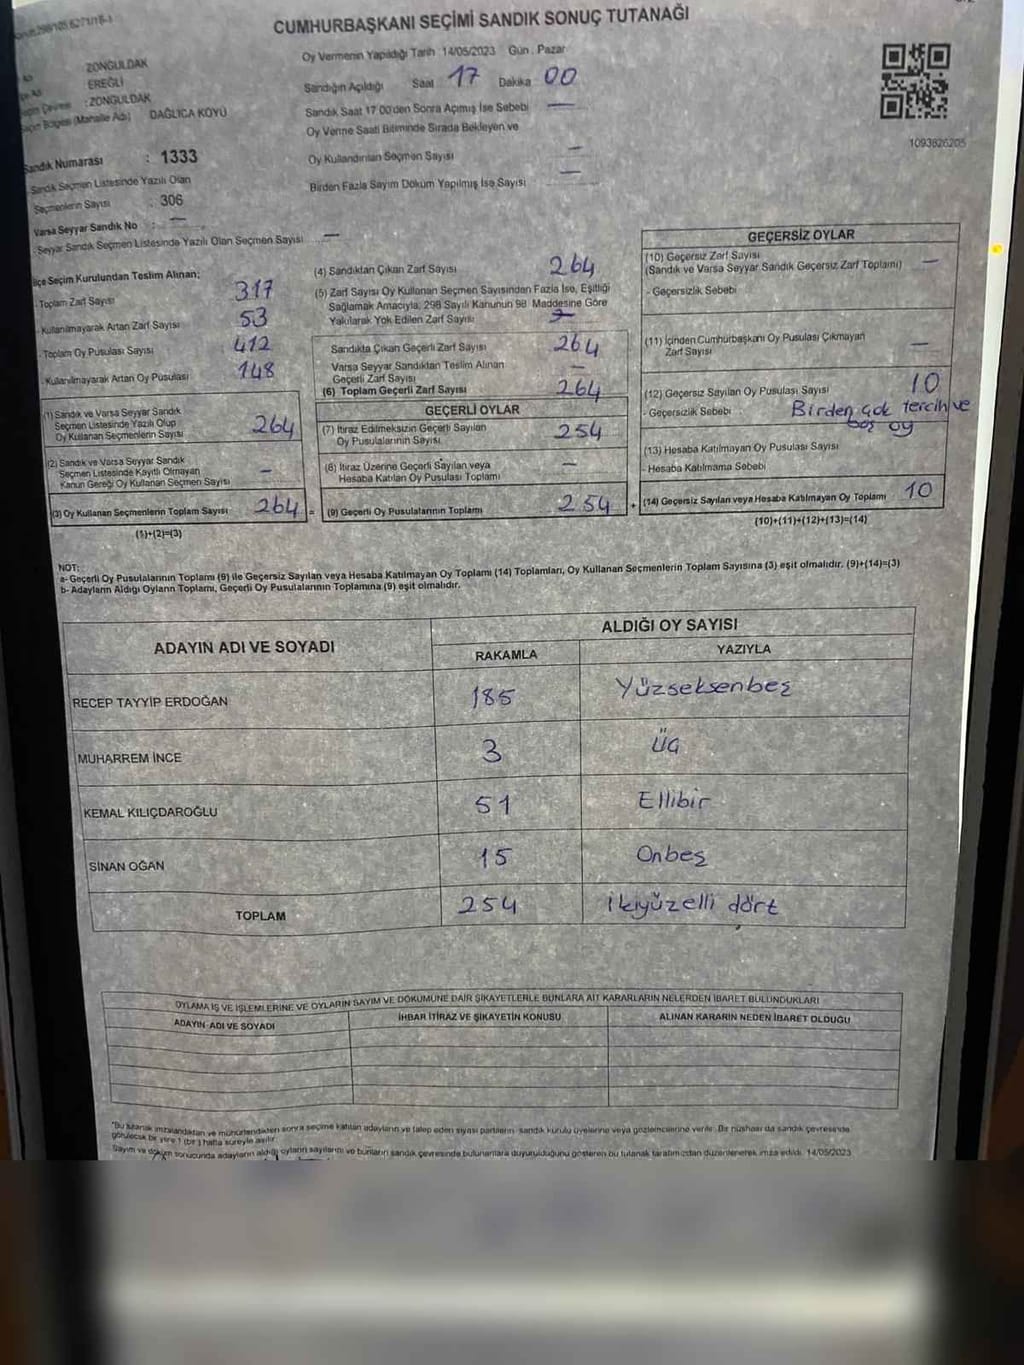 CUMHURBAŞKANI SEÇİMİ SANDIK SONUÇ TUTANAĞI
ZONGULDAK
EREĞLİ
: ZONGULDAK
(Mahalle Adı) DAĞLICA KÖYÜ
Sandık Numarası : 1333
Sandık Seçmen Listesinde Yazılı Olan
Seçmenlerin Sayısı : 306
Varsa Seyyar Sandık No : —
- Seyyar Sandık Seçmen Listesinde Yazılı Olan Seçmen Sayısı —
Oy Vermenin Yapıldığı Tarih 14/05/2023 Gün . Pazar
Sandığın Açıldığı Saat 17 Dakika 00
Sandık Saat 17 00'den Sonra Açımış İse Sebebi —
Oy Verme Saati Bitiminde Sırada Bekleyen ve
Oy Kullandırılan Seçmen Sayısı —
Birden Fazla Sayım Döküm Yapılmış İse Sayısı —
1093626205
İlçe Seçim Kurulundan Teslim Alınan;
- Toplam Zarf Sayısı 317
- Kullanılmayarak Artan Zarf Sayısı 53
- Toplam Oy Pusulası Sayısı 412
- Kullanılmayarak Artan Oy Pusulası 148
(1) Sandık ve Varsa Seyyar Sandık
Seçmen Listesinde Yazılı Olup
Oy Kullanan Seçmenlerin Sayısı 264
(2) Sandık ve Varsa Seyyar Sandık
Seçmen Listesinde Kayıtlı Olmayan
Kanun Gereği Oy Kullanan Seçmen Sayısı —
(3) Oy Kullanan Seçmenlerin Toplam Sayısı 264 =
(1)+(2)=(3)
(4) Sandıktan Çıkan Zarf Sayısı 264
(5) Zarf Sayısı Oy Kullanan Seçmen Sayısından Fazla İse, Eşitliği
Sağlamak Amacıyla, 298 Sayılı Kanunun 98 Maddesine Göre
Yakılarak Yok Edilen Zarf Sayısı
Sandıkta Çıkan Geçerli Zarf Sayısı 264
Varsa Seyyar Sandıktan Teslim Alınan
Geçerli Zarf Sayısı —
(6) Toplam Geçerli Zarf Sayısı 264
GEÇERLİ OYLAR
(7) İtiraz Edilmeksizin Geçerli Sayılan
Oy Pusulalarının Sayısı 254
(8) İtiraz Üzerine Geçerli Sayılan veya
Hesaba Katılan Oy Pusulası Toplamı —
(9) Geçerli Oy Pusulalarının Toplamı 254 +
GEÇERSİZ OYLAR
(10) Geçersiz Zarf Sayısı
(Sandık ve Varsa Seyyar Sandık Geçersiz Zarf Toplamı) —
- Geçersizlik Sebebi
(11) İçinden Cumhurbaşkanı Oy Pusulası Çıkmayan
Zarf Sayısı —
(12) Geçersiz Sayılan Oy Pusulası Sayısı 10
- Geçersizlik Sebebi Birden çok tercih ve
boş oy
(13) Hesaba Katılmayan Oy Pusulası Sayısı
- Hesaba Katılmama Sebebi
(14) Geçersiz Sayılan veya Hesaba Katılmayan Oy Toplamı 10
(10)+(11)+(12)+(13)=(14)
NOT:
a- Geçerli Oy Pusulalarının Toplamı (9) ile Geçersiz Sayılan veya Hesaba Katılmayan Oy Toplamı (14) Toplamları, Oy Kullanan Seçmenlerin Toplam Sayısına (3) eşit olmalıdır. (9)+(14)=(3)
b- Adayların Aldığı Oyların Toplamı, Geçerli Oy Pusulalarının Toplamına (9) eşit olmalıdır.
ADAYIN ADI VE SOYADI
ALDIĞI OY SAYISI
RAKAMLA YAZIYLA
RECEP TAYYİP ERDOĞAN 185 Yüzseksenbeş
MUHARREM İNCE 3 Üç
KEMAL KILIÇDAROĞLU 51 Ellibir
SİNAN OĞAN 15 Onbeş
TOPLAM 254 İkiyüzelli dört
OYLAMA İŞ VE İŞLEMLERİNE VE OYLARIN SAYIM VE DÖKÜMÜNE DAİR ŞİKAYETLERLE BUNLARA AİT KARARLARIN NELERDEN İBARET BULUNDUKLARI
ADAYIN ADI VE SOYADI İHBAR İTİRAZ VE ŞİKAYETİN KONUSU ALINAN KARARIN NEDEN İBARET OLDUĞU
*Bu tutanak imzalandıktan ve mühürlendikten sonra seçime katılan adayların ve talep eden siyasi partilerin sandık kurulu üyelerine veya gözlemcilerine verilir. Bir nüshası da sandık çevresinde
görülecek bir yere 1 (bir) hafta süreyle asılır.
Sayım ve döküm sonucunda adayların aldığı oyların sayılarını ve bunların sandık çevresinde bulunanlara duyurulduğunu gösteren bu tutanak tarafımızdan düzenlenerek imza edildi. 14/05/2023